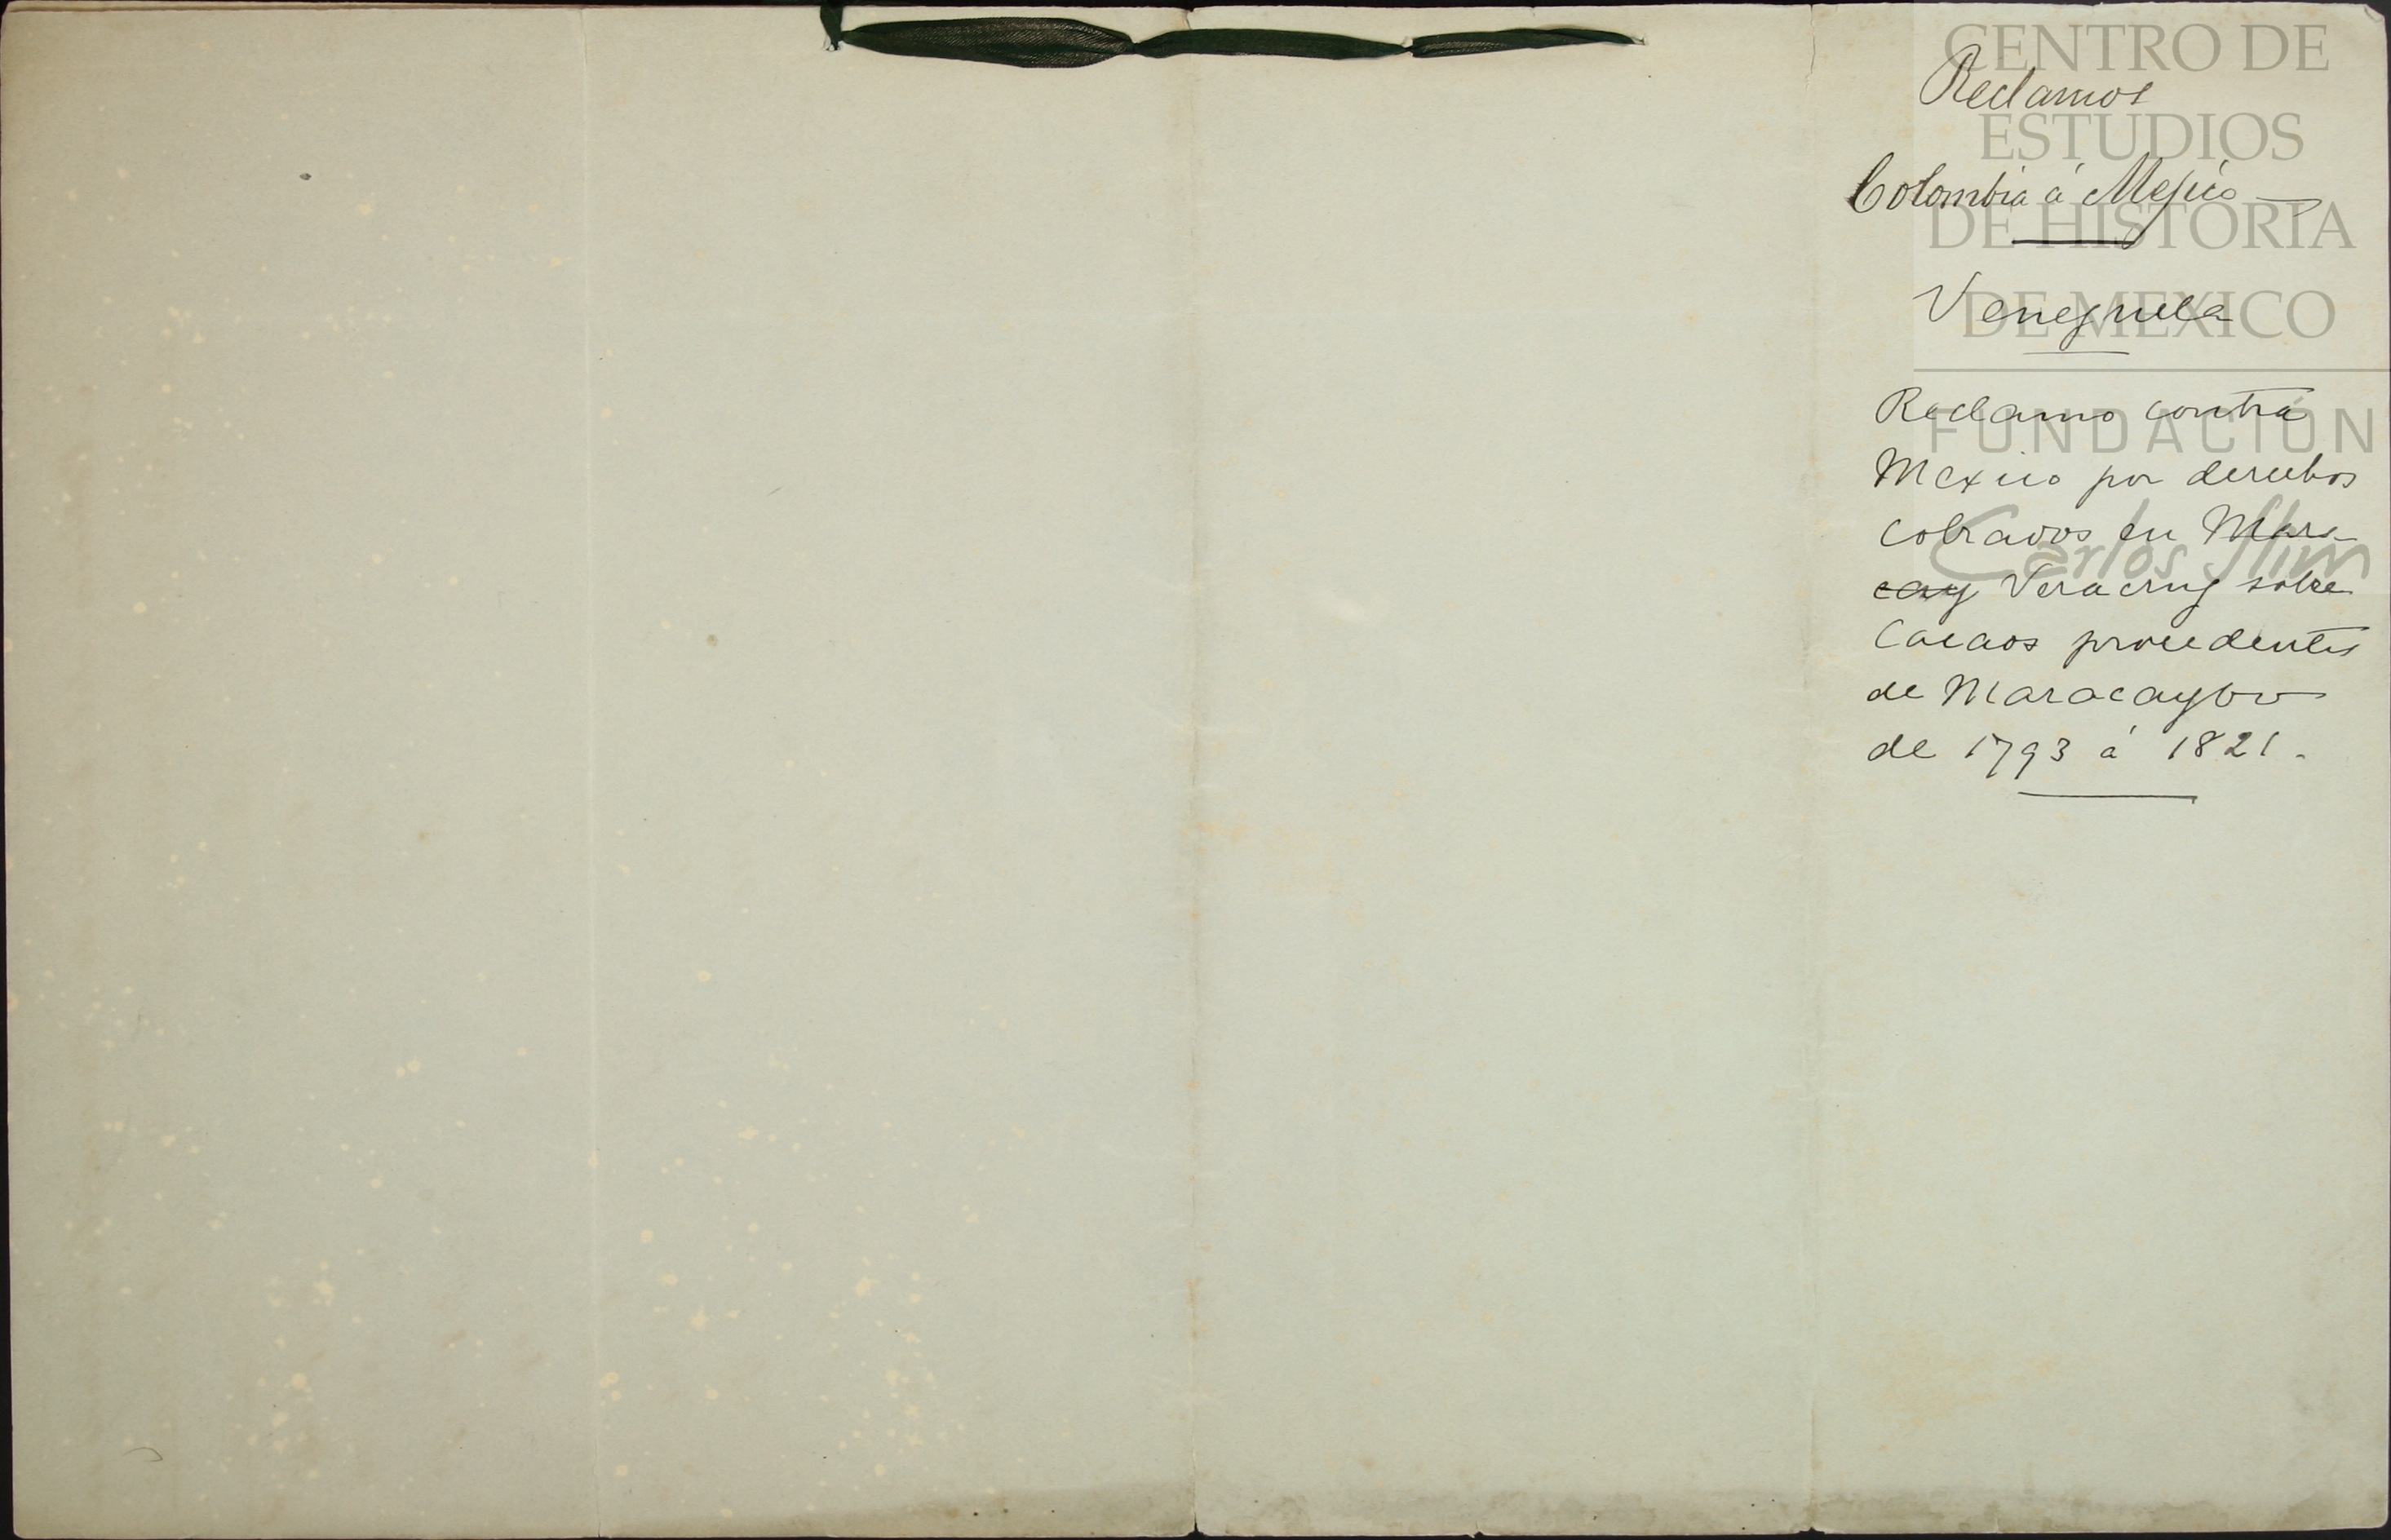 CENTRO DE
ESTUDIOS
DE HISTORIA
DE MEXICO
FUNDACIÓN
Carlos Slim
Reclamos
Colombia á Mejico
Venezuela
Reclamo contra
Mexico por derechos
cobrados en Mara-
cay Veracruz sobre
Cacaos procedentes
de Maracaybo
de 1793 á 1821.